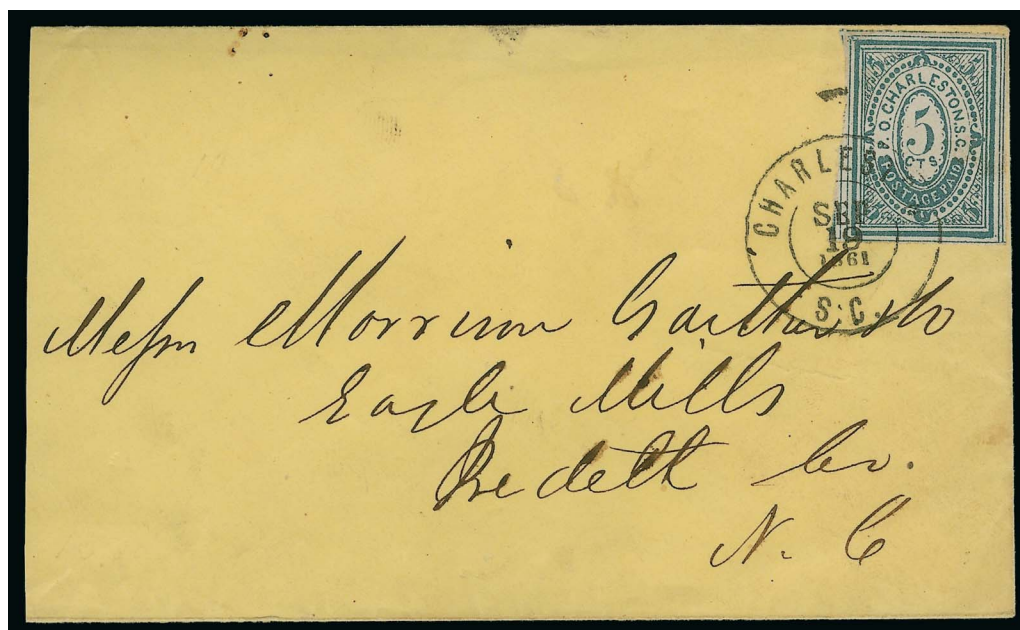 P. O. CHARLESTON. S.C.
5
CTS
POSTAGE PAID
CHARLES
SEP
19
1861
S. C.
Messrs Morrison Gaither & Co
Eagle Mills
Iredell Co.
N. C